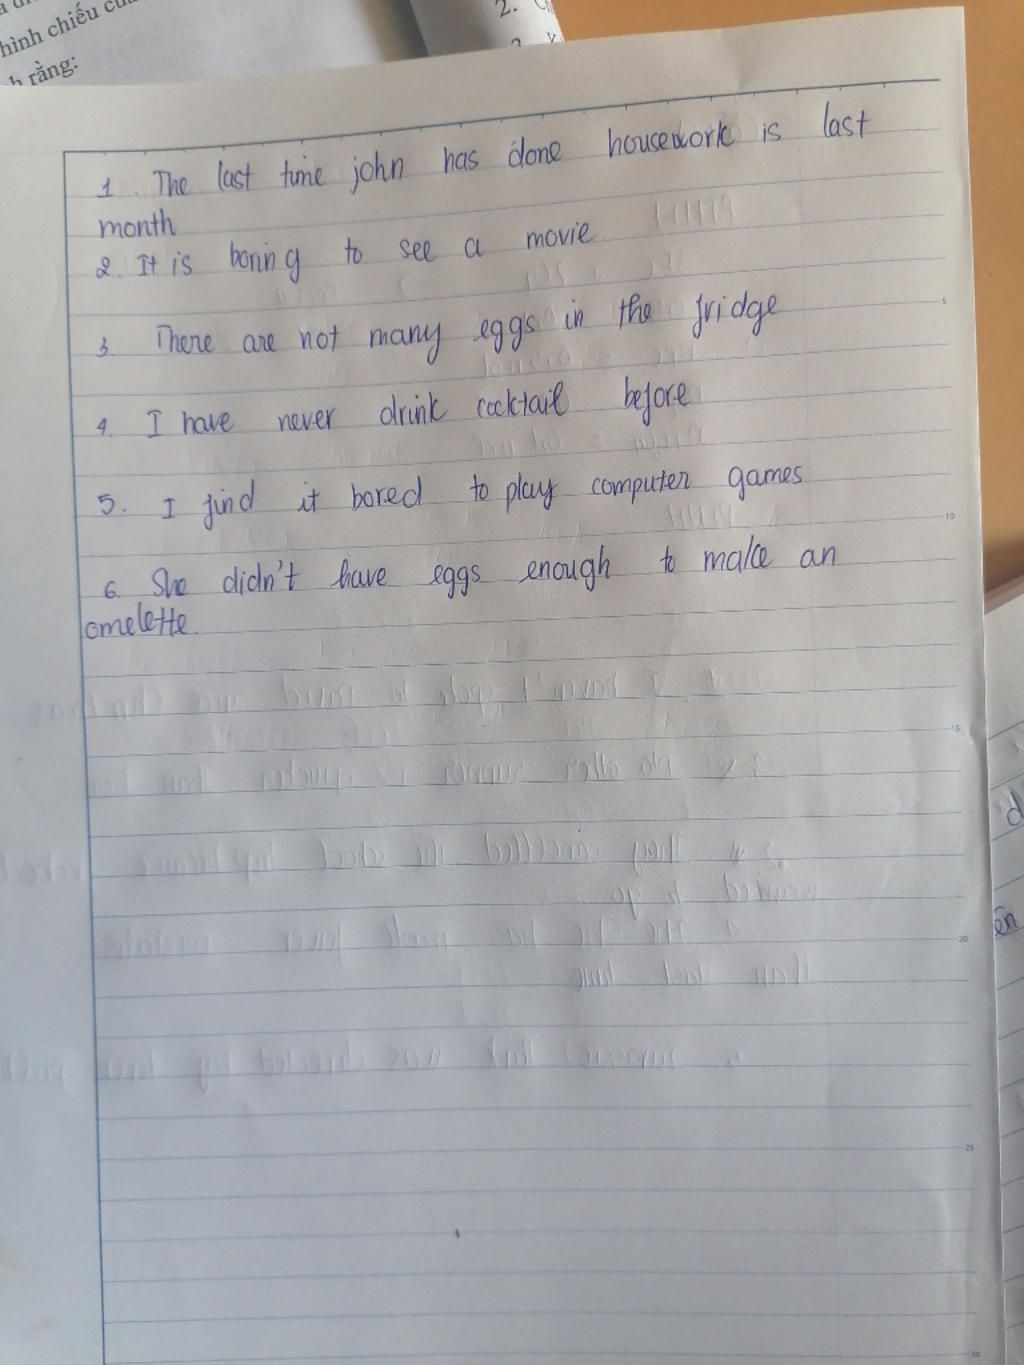 hình chiếu
h rằng:
2.
1. The last time john has done housework is last
month
2. It is boring to see a movie
3. There are not many eggs in the fridge
4. I have never drink cocktail before
5. I find it bored to play computer games
6. She didn't have eggs enough to make an
omelette.
5
10
15
20
25
30
ên